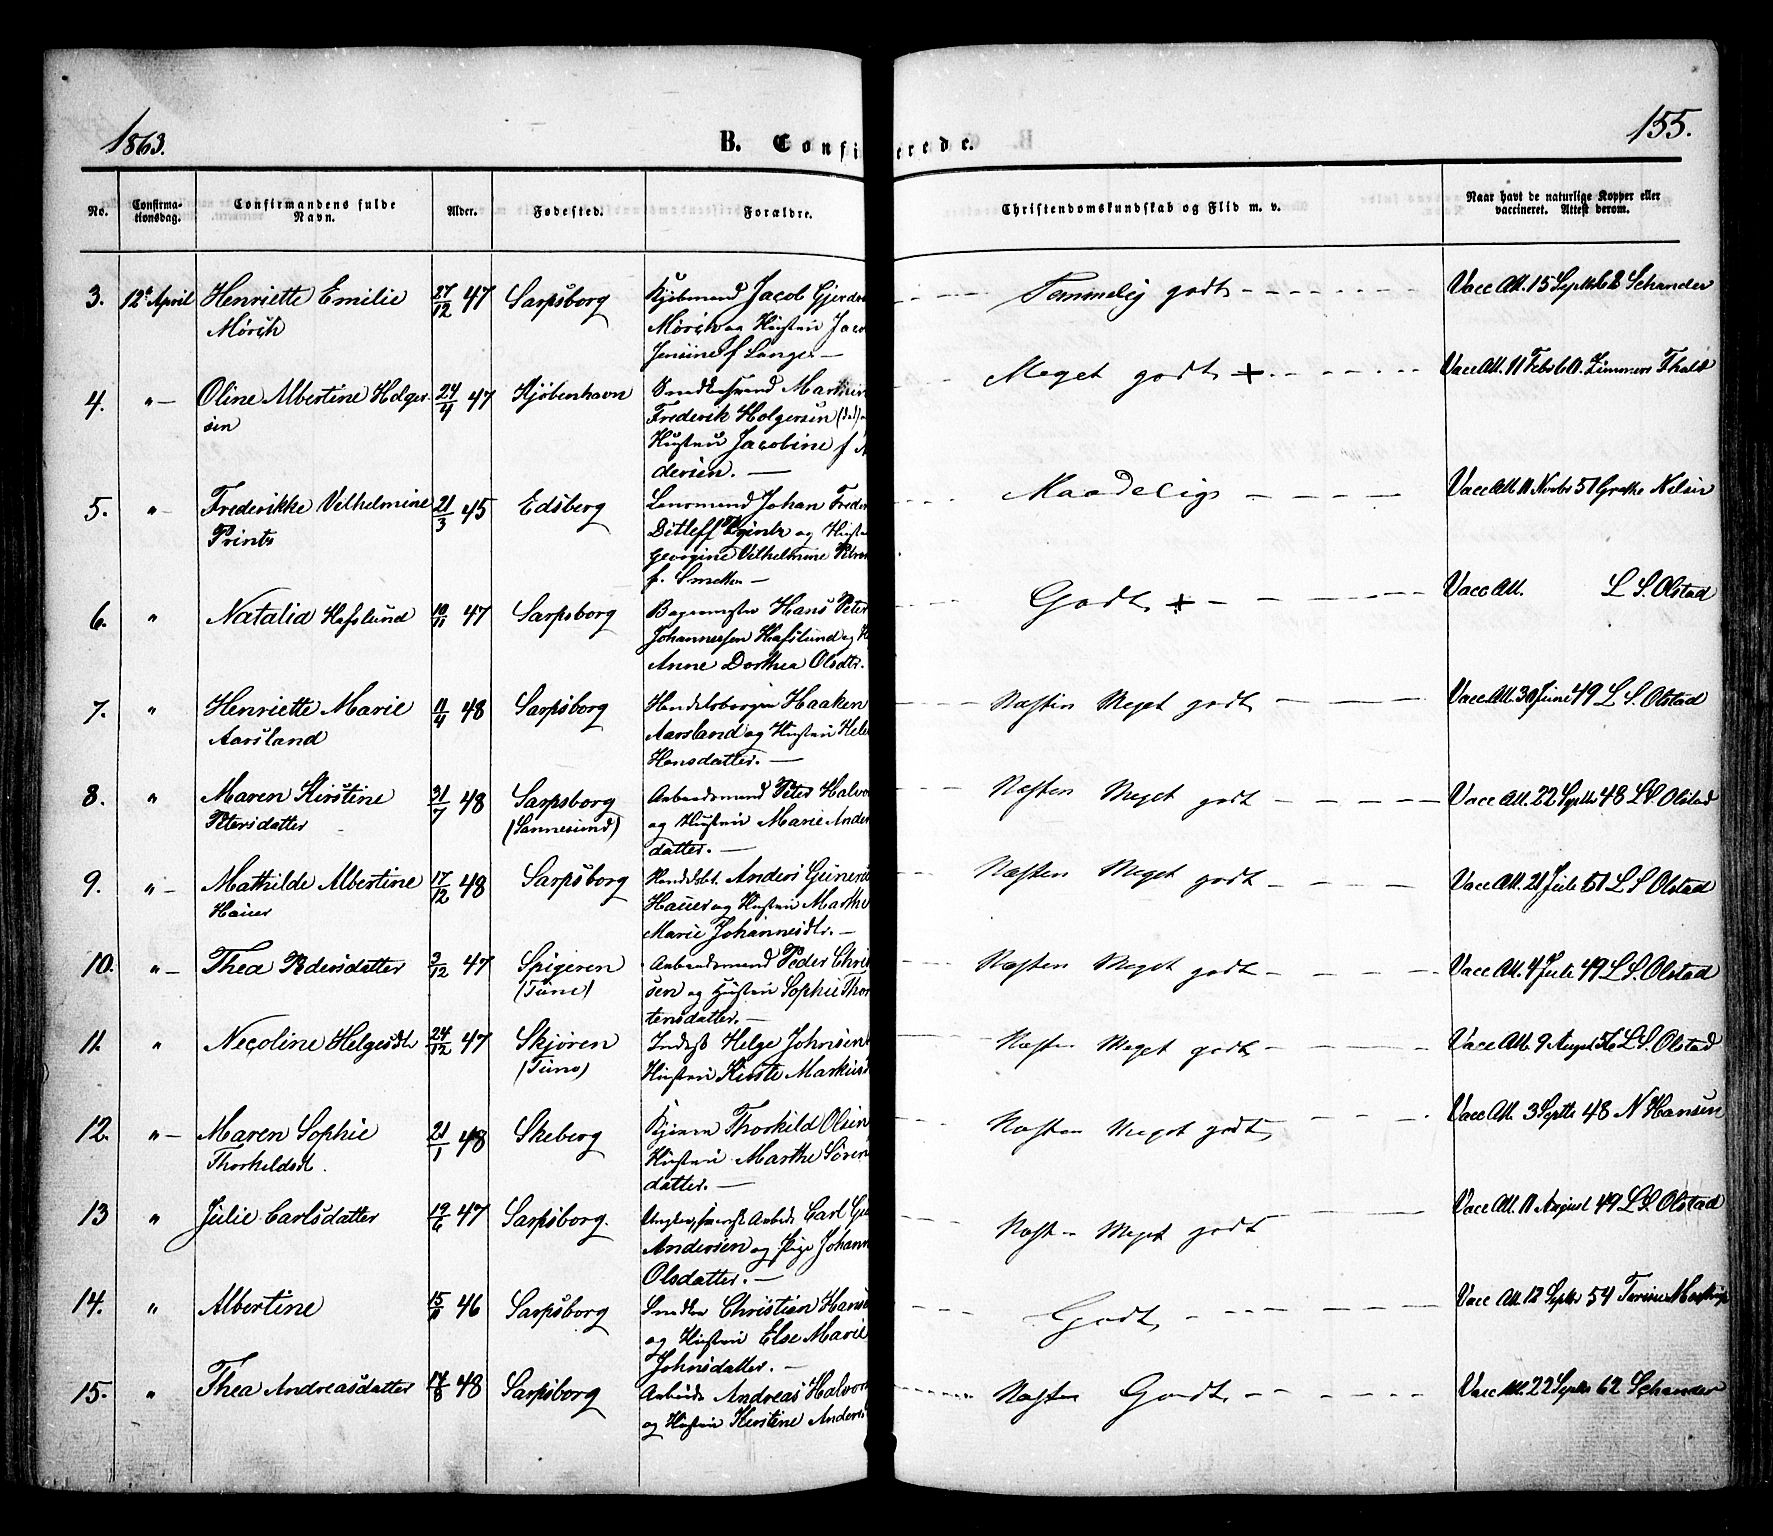 1863.
B. Confirmerede.
155.
No.
Confirma-
tionsdag.
Confirmandens fulde
Navn.
Alder.
Fødested.
Forældre.
Christendomskundskab og Flid m. v.
Naar havt de naturlige Kopper eller
vaccineret. Attest derom.
3. 12te April Henriette Emilie 27/12 47 Sarpsborg Kjøbmand Jacob Gjerdr Temmelig godt Vacc Att. 15 Septbr 62 Schander
Mørch Mørch og Hustru Jaco
Jensine f Lange
4. " Oline Albertine Holger 24/4 47 Kjøbenhavn Snedkersvend Martin Meget godt + Vacc Att. 11 Febr 60. Zimmers Thale
sen Frederik Holgersen (død)
Hustru Jacobine f A
dersen.
5. " Frederikke Vilhelmine 21/3 45 Edsberg Lensmand Johan Freder Maadelig Vacc Att 11 Novbr 51 Grethe Nilsen
Prints Ditleff Printz og Hustru
Georgine Vilhelmine Petr
f. Smetten
6. " Natalia Hafslund 10/11 47 Sarpsborg Bagermester Hans Peter Godt + Vacc Att. L S. Olstad
Johannessen Hafslund og H
Anne Dorthea Olsdtr.
7. " Henriette Marie 11/4 48 Sarpsborg Handelsborger Haaken Næsten Meget godt Vacc Att. 30 June 49 L S. Olstad
Aarsland Aarsland og Hustru Hele
Hansdatter.
8. " Maren Kirstine 31/7 48 Sarpsborg Arbeidsmand Peter Halvo Næsten Meget godt Vacc Att. 22 Septbr 48 L S. Olstad
Petersdatter (Sannesund) og Hustru Marie Ander
datter.
9. " Mathilde Albertine 17/12 48 Sarpsborg Handelsb. Anders Guneriu Næsten Meget godt Vacc Att. 21 Juli 51 L S. Olstad
Hauer Hauer og Hustru Marthe
Marie Johannesdtr.
10. " Thea Pedersdatter 3/12 47 Spigeren Arbeidsmand Peder Chris Næsten Meget godt Vacc Att. 4 Juli 49 L S. Olstad
(Tune) sen og Hustru Sophie Thor
tensdatter.
11. " Nicoline Helgesdtr 24/12 47 Skjøren Inderst Helge Johnsen Næsten Meget godt Vacc Att. 9 August L S. Olstad
(Tune) Hustru Kirsti Markus
12. " Maren Sophie 21/1 48 Skeberg Thorkild Olsen Næsten Meget godt Vacc Att. 3 Septbr 48 N Hansen
Thorkeldsd. Hustru Marthe Søren
datter.
13 " Julie Carlsdatter 19/6 47 Sarpsborg. Ungkar, Arbeidr Carl Gu Næsten Meget godt Vacc Att. 11 August 49 L S. Olstad
Andersen og Pige Johann
Olsdatter.
14. " Albertine 15/11 46 Sarpsborg Snedker Christian Hans Godt Vacc Att. 12 Septbr 54
og Hustru Else Marie
Johnsdatter.
15. " Thea Andreasdatter 17/8 48 Sarpsborg Arbeidr Andreas Halvor Næsten Godt Vacc Att. 22 Septbr 62 Schander
og Hustru Kirstine Anders